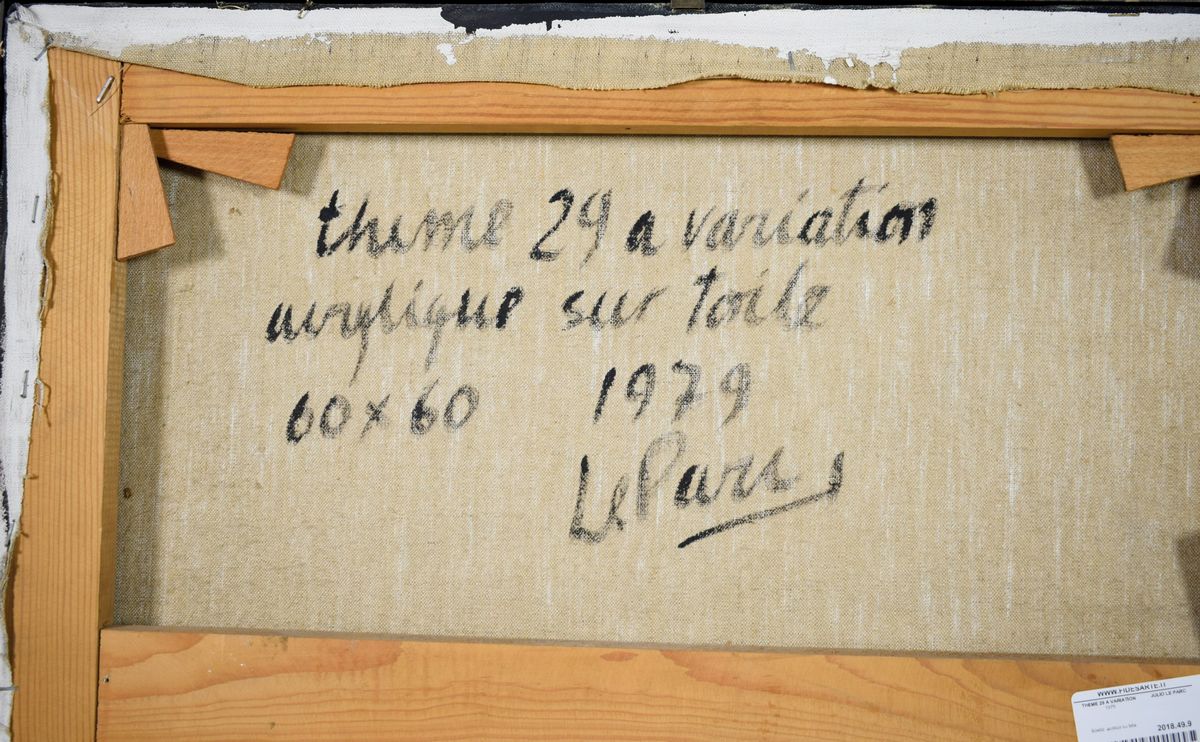 theme 29 a variation
acrylique sur toile
60 x 60 1979
Le Parc
WWW.FIDESARTE.IT
THEME 29 A VARIATION JULIO LE PARC
1979
2018.49.9